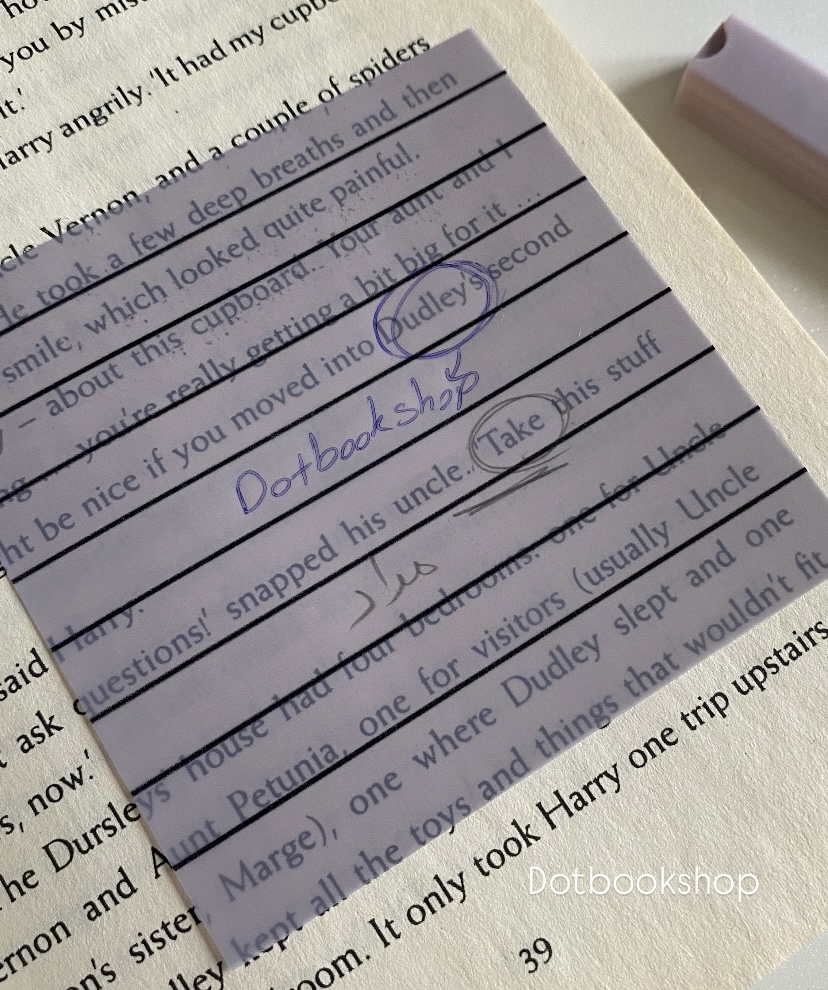 you by mis
it.'
arry angrily. 'It had my cupbo
cle Vernon, and a couple of spiders
He took a few deep breaths and then
smile, which looked quite painful.
y – about this cupboard. Your aunt and I
ng ... you're really getting a bit big for it ...
ht be nice if you moved into Dudley's second
Dotbookshop
said Harry.
t ask questions!' snapped his uncle. 'Take this stuff
s, now.'
The Dursleys' house had four bedrooms: one for Uncle
ernon and Aunt Petunia, one for visitors (usually Uncle
on's sister, Marge), one where Dudley slept and one
dley kept all the toys and things that wouldn't fit
oom. It only took Harry one trip upstairs
Dotbookshop
39